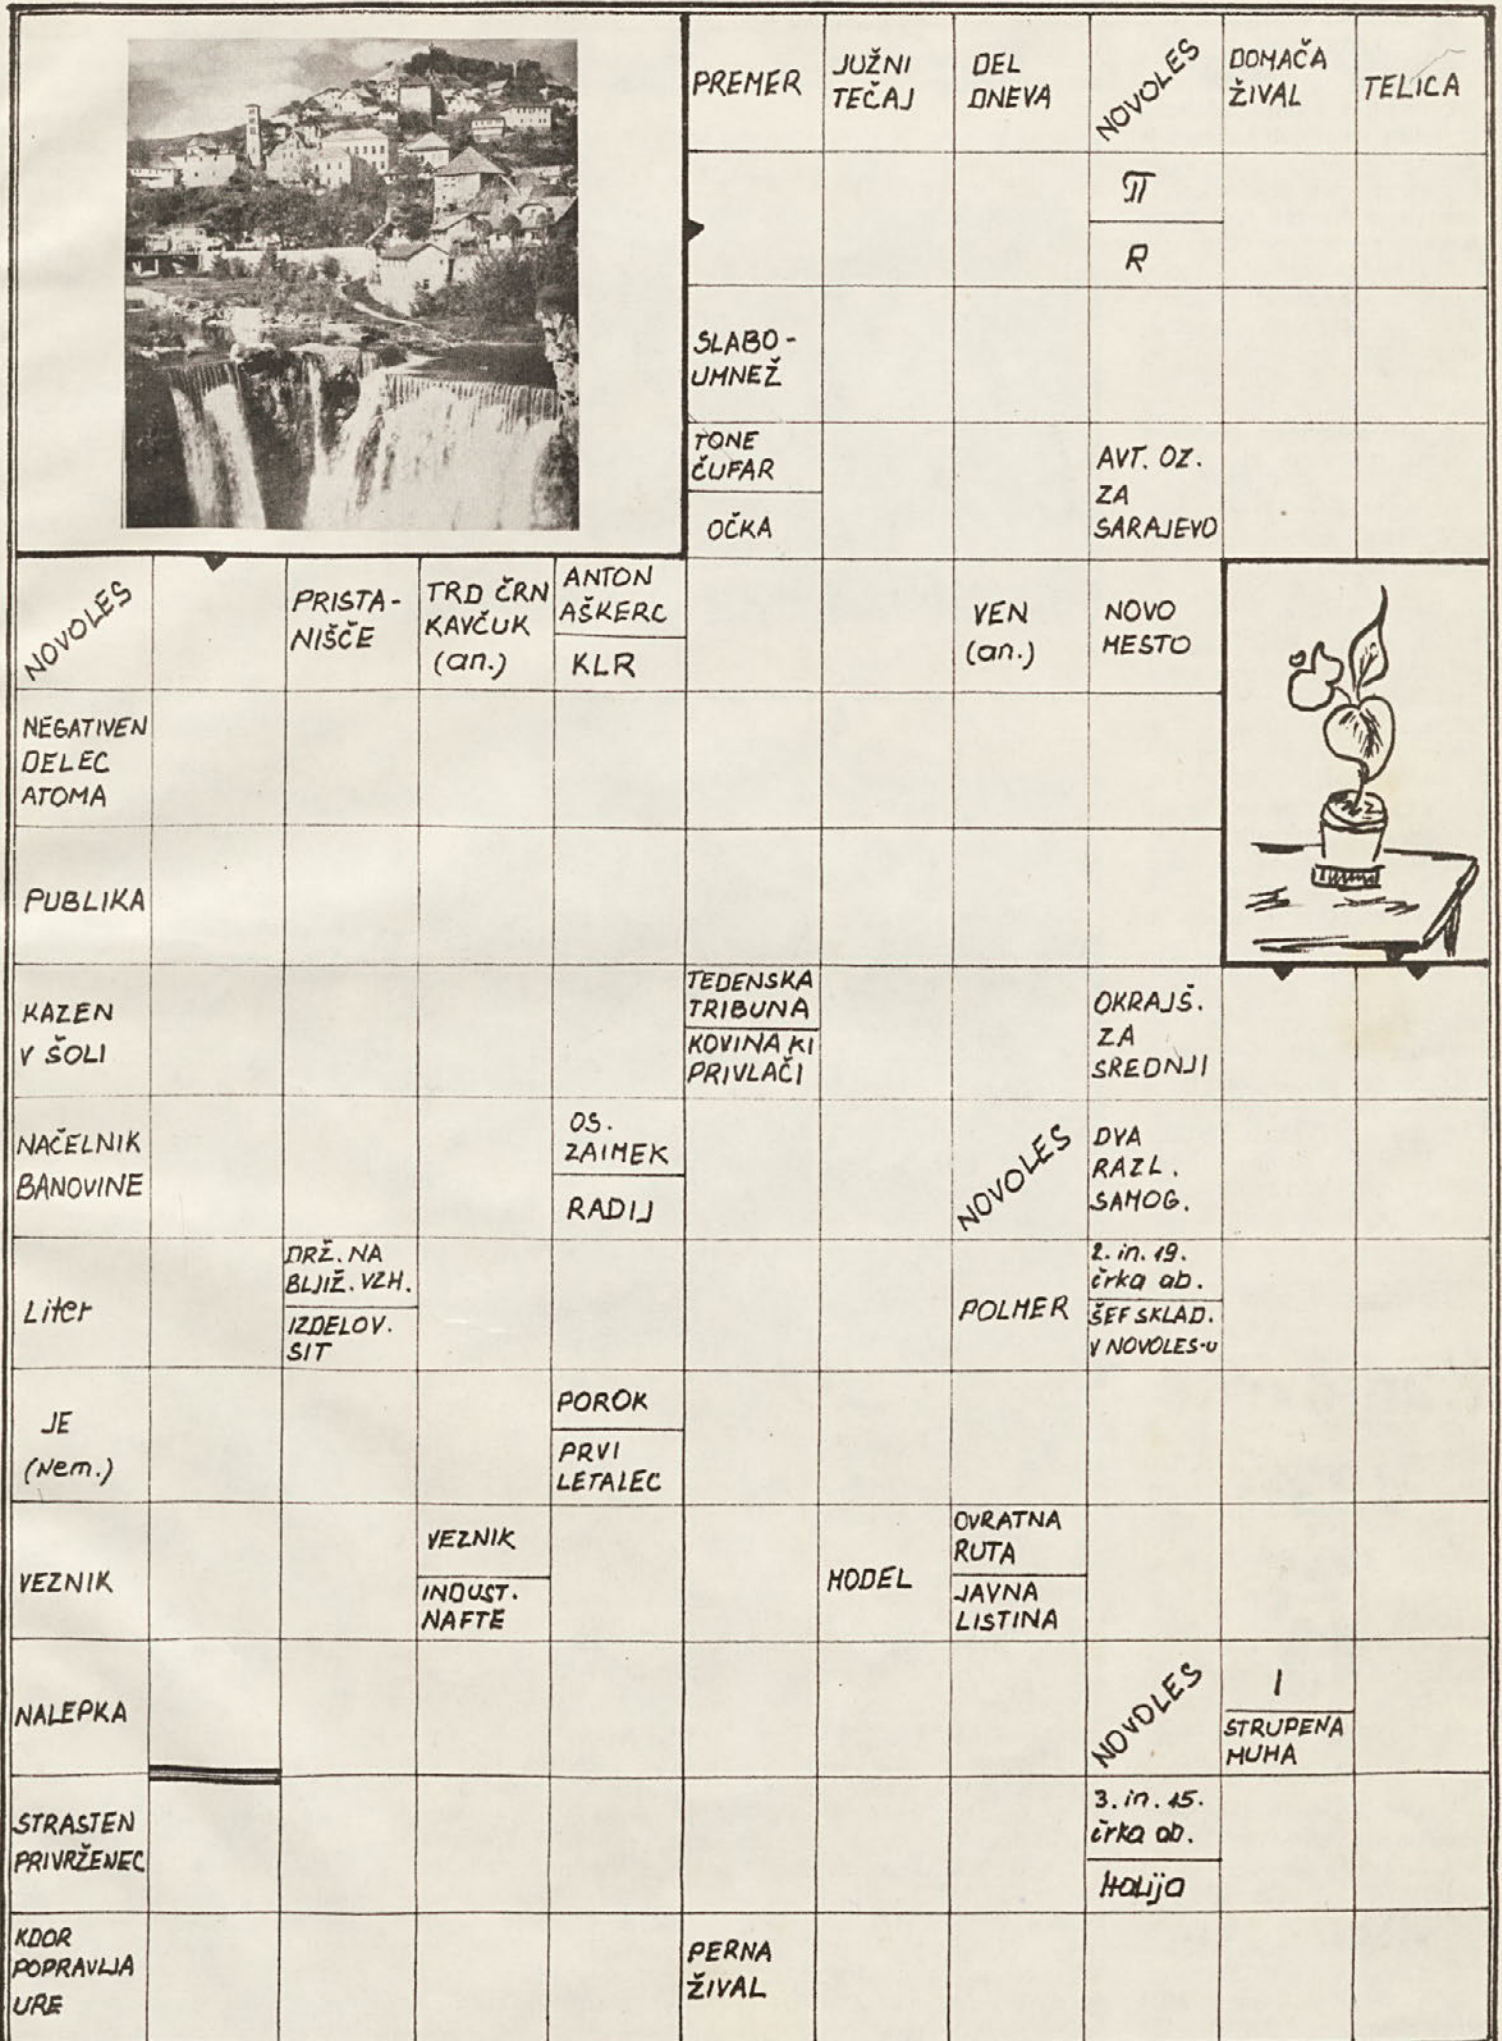 PREMER
JUŽNI
TEČAJ
DEL
DNEVA
NOVOLES
DOMAČA
ŽIVAL
TELICA
π
R
SLABO-
UMNEŽ
TONE
ČUFAR
OČKA
AVT. OZ.
ZA
SARAJEVO
NOVOLES
PRISTA-
NIŠČE
TRD ČRN
KAVČUK
(an.)
ANTON
AŠKERC
KLR
VEN
(an.)
NOVO
MESTO
NEGATIVEN
DELEC
ATOMA
PUBLIKA
KAZEN
V ŠOLI
TEDENSKA
TRIBUNA
KOVINA KI
PRIVLAČI
OKRAJŠ.
ZA
SREDNJI
NAČELNIK
BANOVINE
OS.
ZAIMEK
RADIJ
NOVOLES
DVA
RAZL.
SAMOG.
Liter
DRŽ. NA
BLJIŽ. VZH.
IZDELOV.
SIT
POLMER
2. in. 19.
črka ab.
ŠEF SKLAD.
V NOVOLES-u
JE
(Nem.)
POROK
PRVI
LETALEC
VEZNIK
VEZNIK
INDUST.
NAFTE
MODEL
OVRATNA
RUTA
JAVNA
LISTINA
NALEPKA
NOVOLES
I
STRUPENA
MUHA
STRASTEN
PRIVRŽENEC
3. in. 15.
črka ab.
Italija
KDOR
POPRAVLJA
URE
PERNA
ŽIVAL